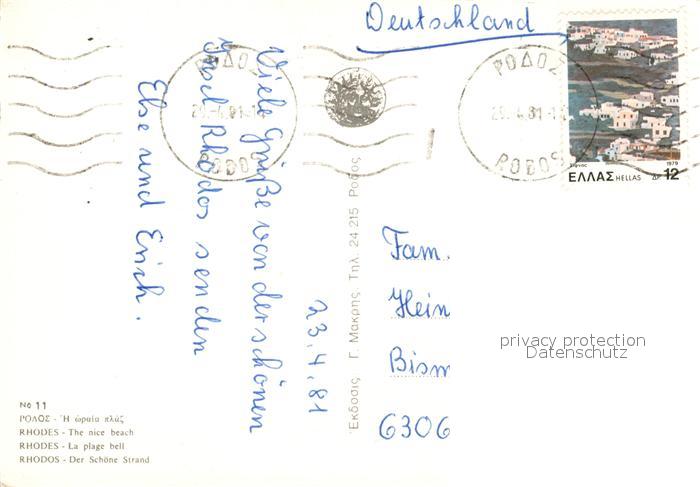 Deutschland
Viele Grüße von der schönen
Insel Rhodos senden
Else und Erich.
23.4.81
Fam.
Hein
Bism
6306
privacy protection
Datenschutz
ΡΟΔΟΣ
ΡΟΔΟΣ
RODOS
RODOS
1979
ΕΛΛΑΣ HELLAS ΔΡ 12
Ἔκδοσις Γ. Μακρής Τηλ. 24 215 Ροδος
No 11
ΡΟΔΟΣ - Ἡ ὡραία πλὰζ
RHODES - The nice beach
RHODES - La plage bell
RHODOS - Der Schöne Strand